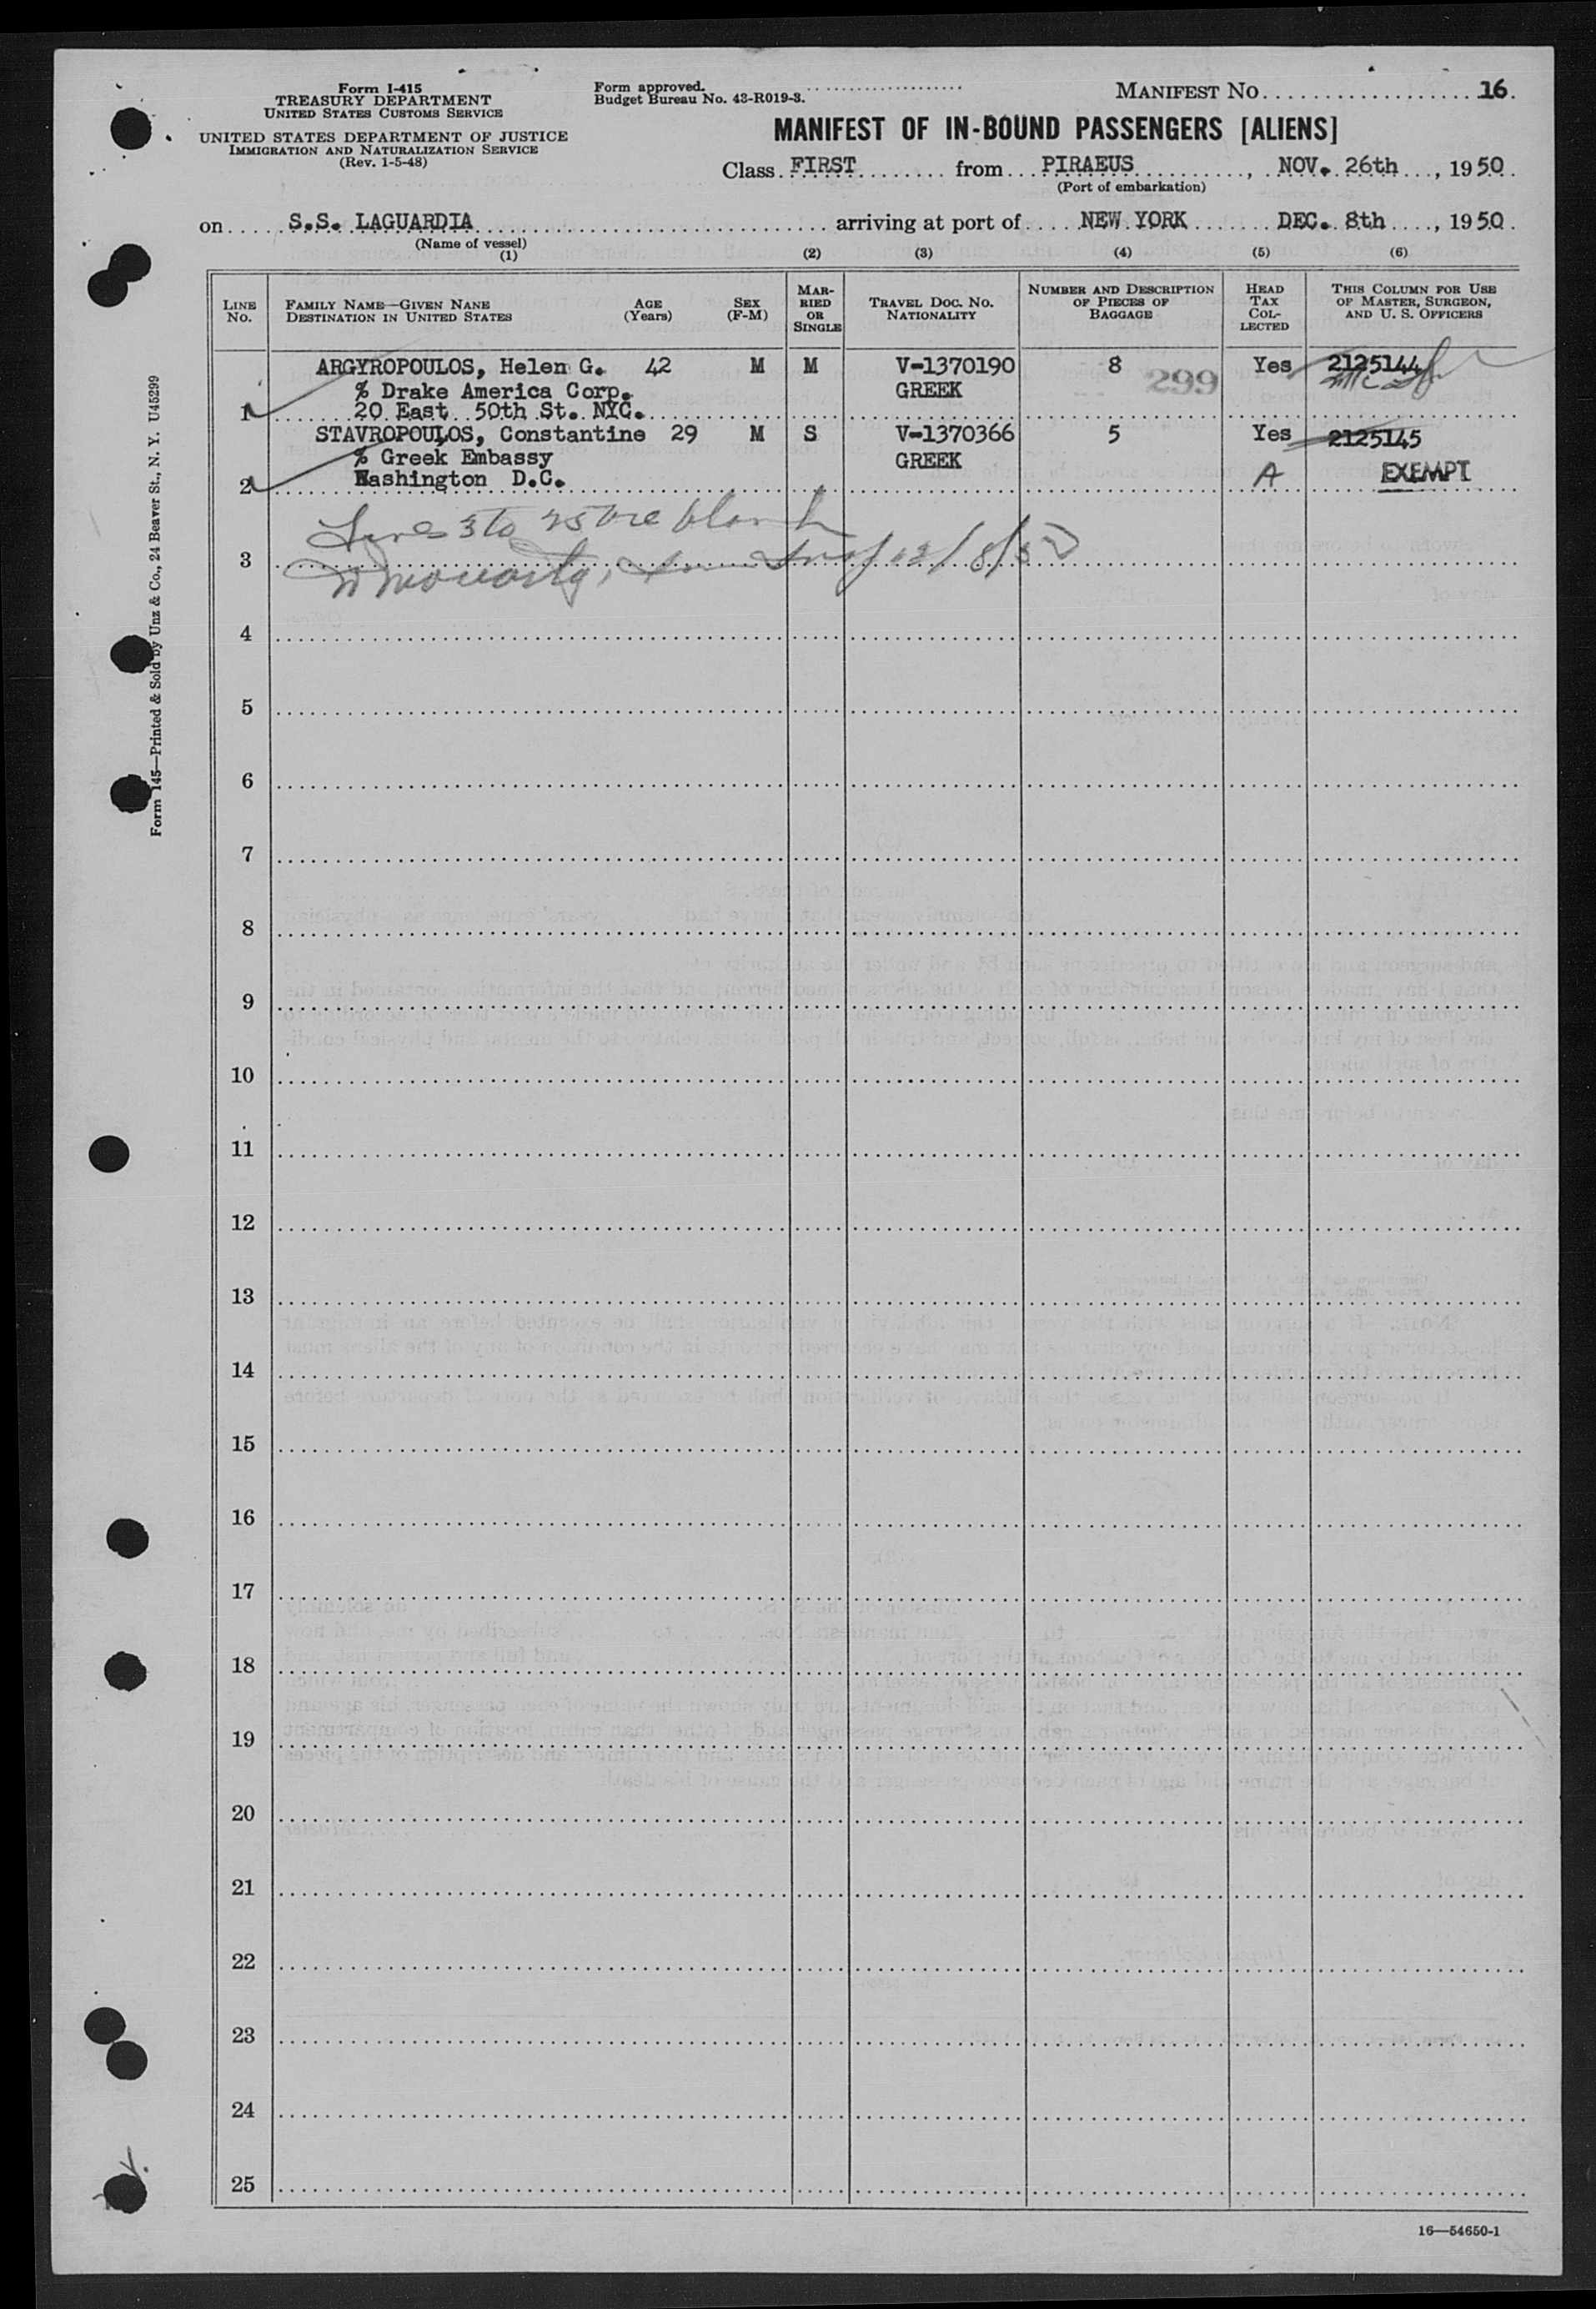 Form I-415
TREASURY DEPARTMENT
UNITED STATES CUSTOMS SERVICE
UNITED STATES DEPARTMENT OF JUSTICE
IMMIGRATION AND NATURALIZATION SERVICE
(Rev. 1-5-48)
Form approved.
Budget Bureau No. 43-R019-3.
MANIFEST NO. 16.
MANIFEST OF IN-BOUND PASSENGERS [ALIENS]
Class FIRST from PIRAEUS, NOV. 26th, 1950.
(Port of embarkation)
on S.S. LAGUARDIA arriving at port of NEW YORK DEC. 8th, 1950.
(Name of vessel)
(1) (2) (3) (4) (5) (6)
LINE NO.
FAMILY NAME—GIVEN NANE
DESTINATION IN UNITED STATES
AGE (Years)
SEX (F-M)
MARRIED OR SINGLE
TRAVEL DOC. NO.
NATIONALITY
NUMBER AND DESCRIPTION OF PIECES OF BAGGAGE
HEAD TAX COLLECTED
THIS COLUMN FOR USE OF MASTER, SURGEON, AND U. S. OFFICERS
ARGYROPOULOS, Helen G. 42 M M V-1370190 8 Yes 2125144
299
% Drake America Corp. GREEK
1 20 East 50th St. NYC.
STAVROPOULOS, Constantine 29 M S V-1370366 5 Yes 2125145
% Greek Embassy GREEK
2 Washington D.C. A EXEMPT
Lines 3 to 25 are blank
3 12/8/50
4
5
6
7
8
9
10
11
12
13
14
15
16
17
18
19
20
21
22
23
24
25
16—54650-1
Form 145—Printed & Sold by Unz & Co., 24 Beaver St., N. Y. U45299